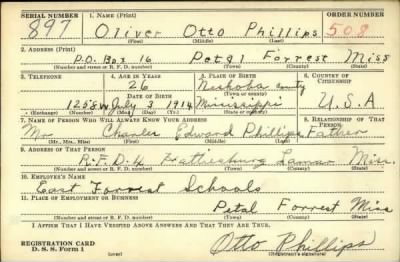 SERIAL NUMBER 1. NAME (Print) ORDER NUMBER
897 Oliver Otto Phillips 508
(First) (Middle) (Last)
2. ADDRESS (Print)
P.O. Box 16 Petal Forrest Miss
(Number and street or R. F. D. number) (Town) (County) (State)
3. TELEPHONE 4. AGE IN YEARS 5. PLACE OF BIRTH 6. COUNTRY OF CITIZENSHIP
26 Neshoba County
(Town or county)
1258W July 3 1914 Mississippi U.S.A
(Exchange) (Number) (Mo.) (Day) (Yr.) (State or country)
7. NAME OF PERSON WHO WILL ALWAYS KNOW YOUR ADDRESS 8. RELATIONSHIP OF THAT PERSON
Mr Charles Edward Phillips Father
(Mr., Mrs., Miss) (First) (Middle) (Last)
9. ADDRESS OF THAT PERSON
R.F.D. 4 Lamar Miss.
(Number and street or R. F. D. number) (Town) (County) (State)
10. EMPLOYER'S NAME
East Forrest Schools
11. PLACE OF EMPLOYMENT OR BUSINESS
Petal Forrest Miss
(Number and street or R. F. D. number) (Town) (County) (State)
I AFFIRM THAT I HAVE VERIFIED ABOVE ANSWERS AND THAT THEY ARE TRUE.
REGISTRATION CARD
D. S. S. Form 1 Otto Phillips
(over) (Registrant's signature)